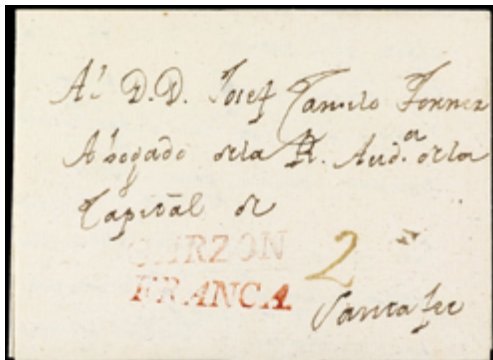 Al D.D. Josef Camilo Torres
Abogado de la R. Aud.a de la
Capital de
GIRZON
FRANCA
2
Santa Fee